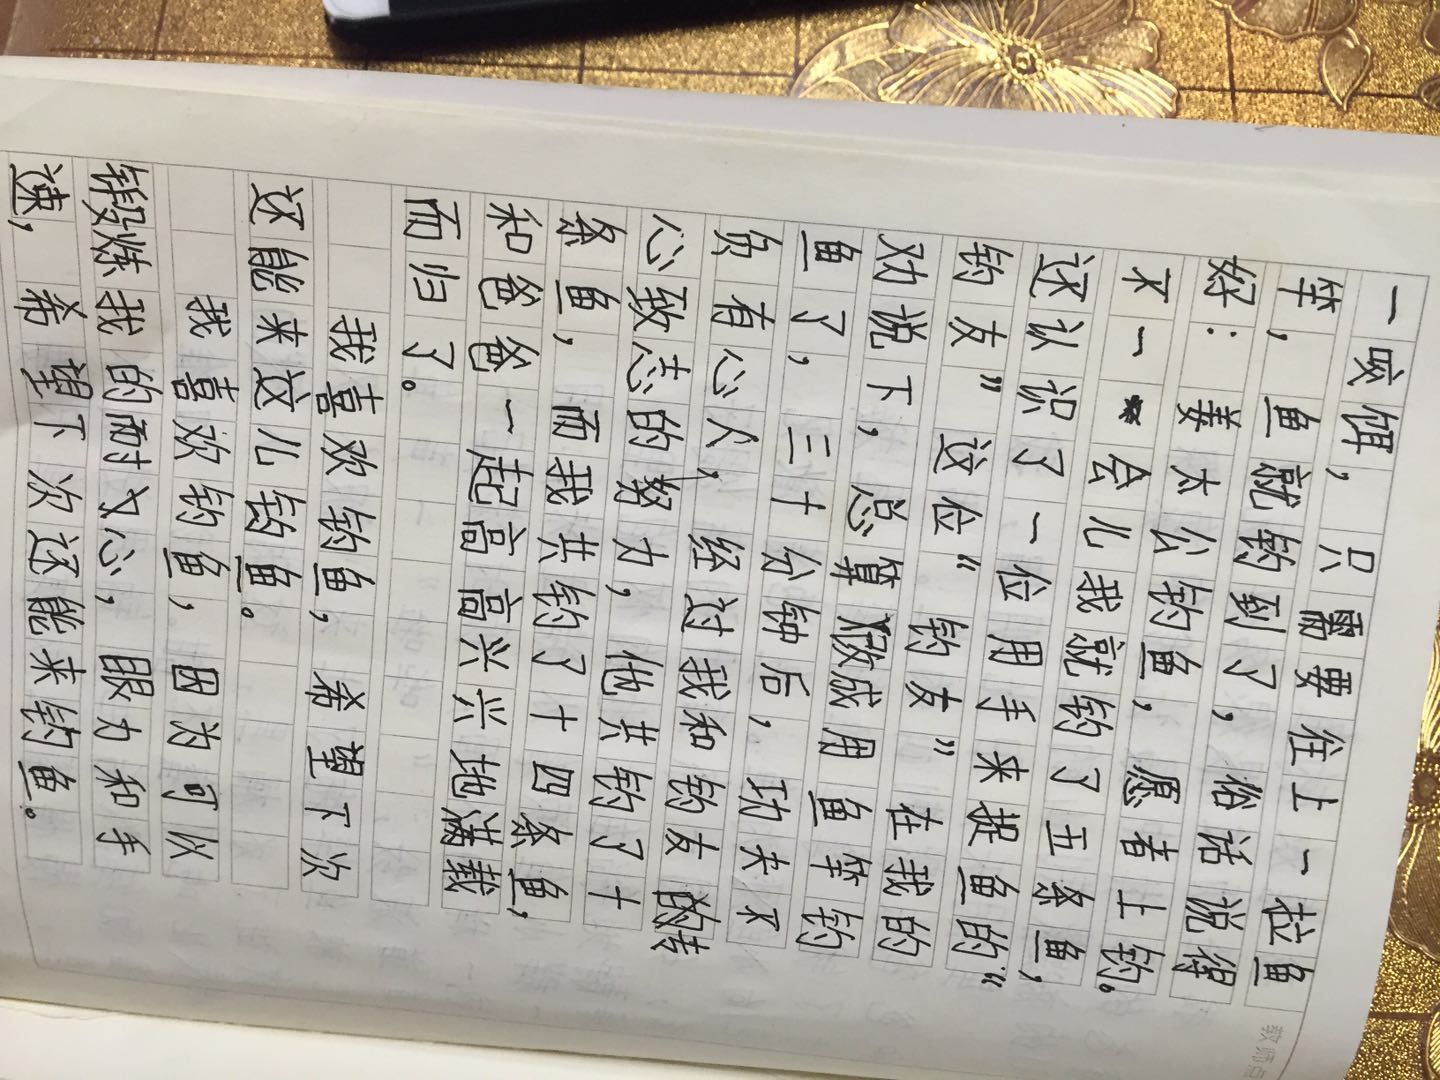 一咬饵，只需要往上一拉鱼
竿，鱼就钓到了，俗话说得
好：姜太公钓鱼，愿者上钓。
不一会儿我就钓了五条鱼，
还认识了一位用手来捉鱼的“
钓友”这位“钓友”在我的
劝说下，总算改成用鱼竿钓
鱼了，三十分钟后，功夫不
负有心人，经过我和钓友的专
心致志的努力，他共钓了十
条鱼，而我共钓了十四条鱼，
和爸爸一起高高兴兴地满载
而归了。
我喜欢钓鱼，希望下次
还能来这儿钓鱼。
我喜欢钓鱼，因为可以
锻炼我的耐心，眼力和手
速，希望下次还能来钓鱼。
教师点